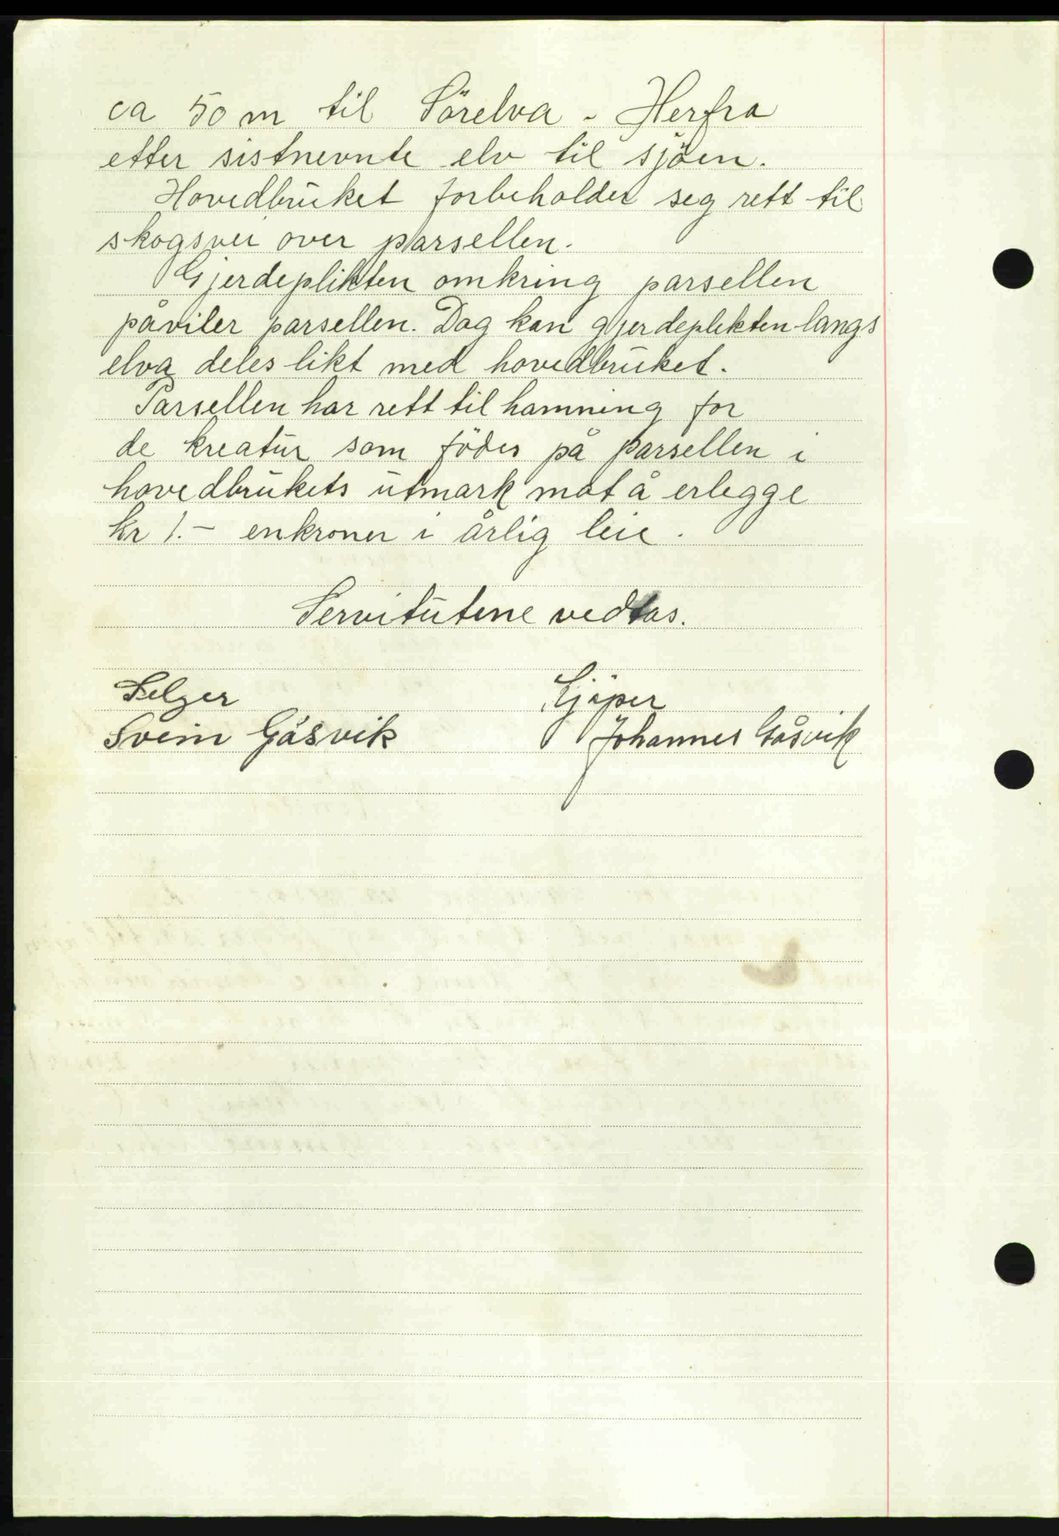 ca 50 m til Sörelva - Herfra
etter sistnevnte elv til sjöen.
Hovedbruket forbeholder seg rett til
skogsvei over parsellen.
Gjerdeplikten omkring parsellen
påviler parsellen. Dog kan gjerdeplikten langs
elva deles likt med hovedbruket.
Parsellen har rett til hamning for
de kreatur som födes på parsellen i
hovedbrukets utmark mot å erlegge
kr 1.- enkroner i årlig leie.
Servitutene vedtas.
Selger
Kjöper
Svein Gåsvik
Johannes Gåsvik